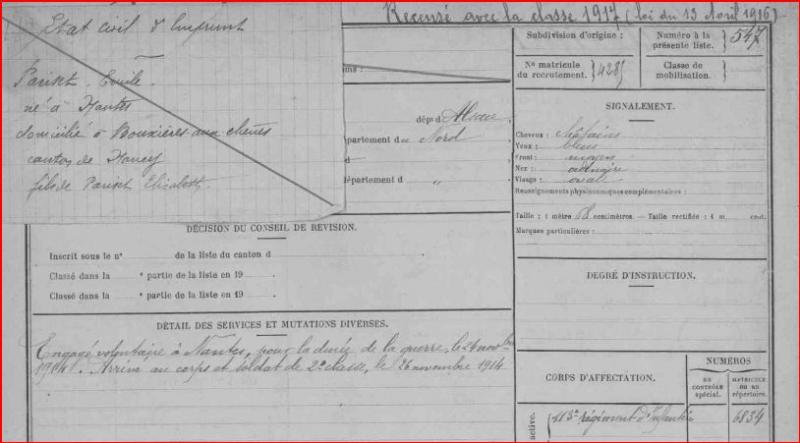 Recensé avec la classe 1917 (loi du 13 Avril 1916)
Etat civil d'emprunt
Parisot Emile
né à Nantes
domicilié à Bouxières aux chênes
canton de Nancy
fils de Parisot Elisabeth
dépt d Alsace
département de Nord
département d "
DÉCISION DU CONSEIL DE REVISION.
Inscrit sous le n° de la liste du canton d
Classé dans la " partie de la liste en 19
Classé dans la " partie de la liste en 19
DÉTAIL DES SERVICES ET MUTATIONS DIVERSES.
Engagé volontaire à Nantes, pour la durée de la guerre, le 24 novbre
1914. Arrivé au corps et soldat de 2e classe, le 26 novembre 1914
Subdivision d'origine :
Numéro à la
présente liste. 547
N° matricule
du recrutement. 4285
Classe de
mobilisation.
SIGNALEMENT.
Cheveux : châtains
Yeux : bleus
Front : moyen
Nez : ordinaire
Visage : oval
Renseignements physionomiques complémentaires :
Taille : 1 mètre 58 centimètres. – Taille rectifiée : 1 m. cent.
Marques particulières :
DEGRÉ D'INSTRUCTION.
CORPS D'AFFECTATION.
NUMÉROS
DU CONTRÔLE spécial.
MATRICULE OU EN répertoire.
active.
113e régiment d'Infanterie
6834